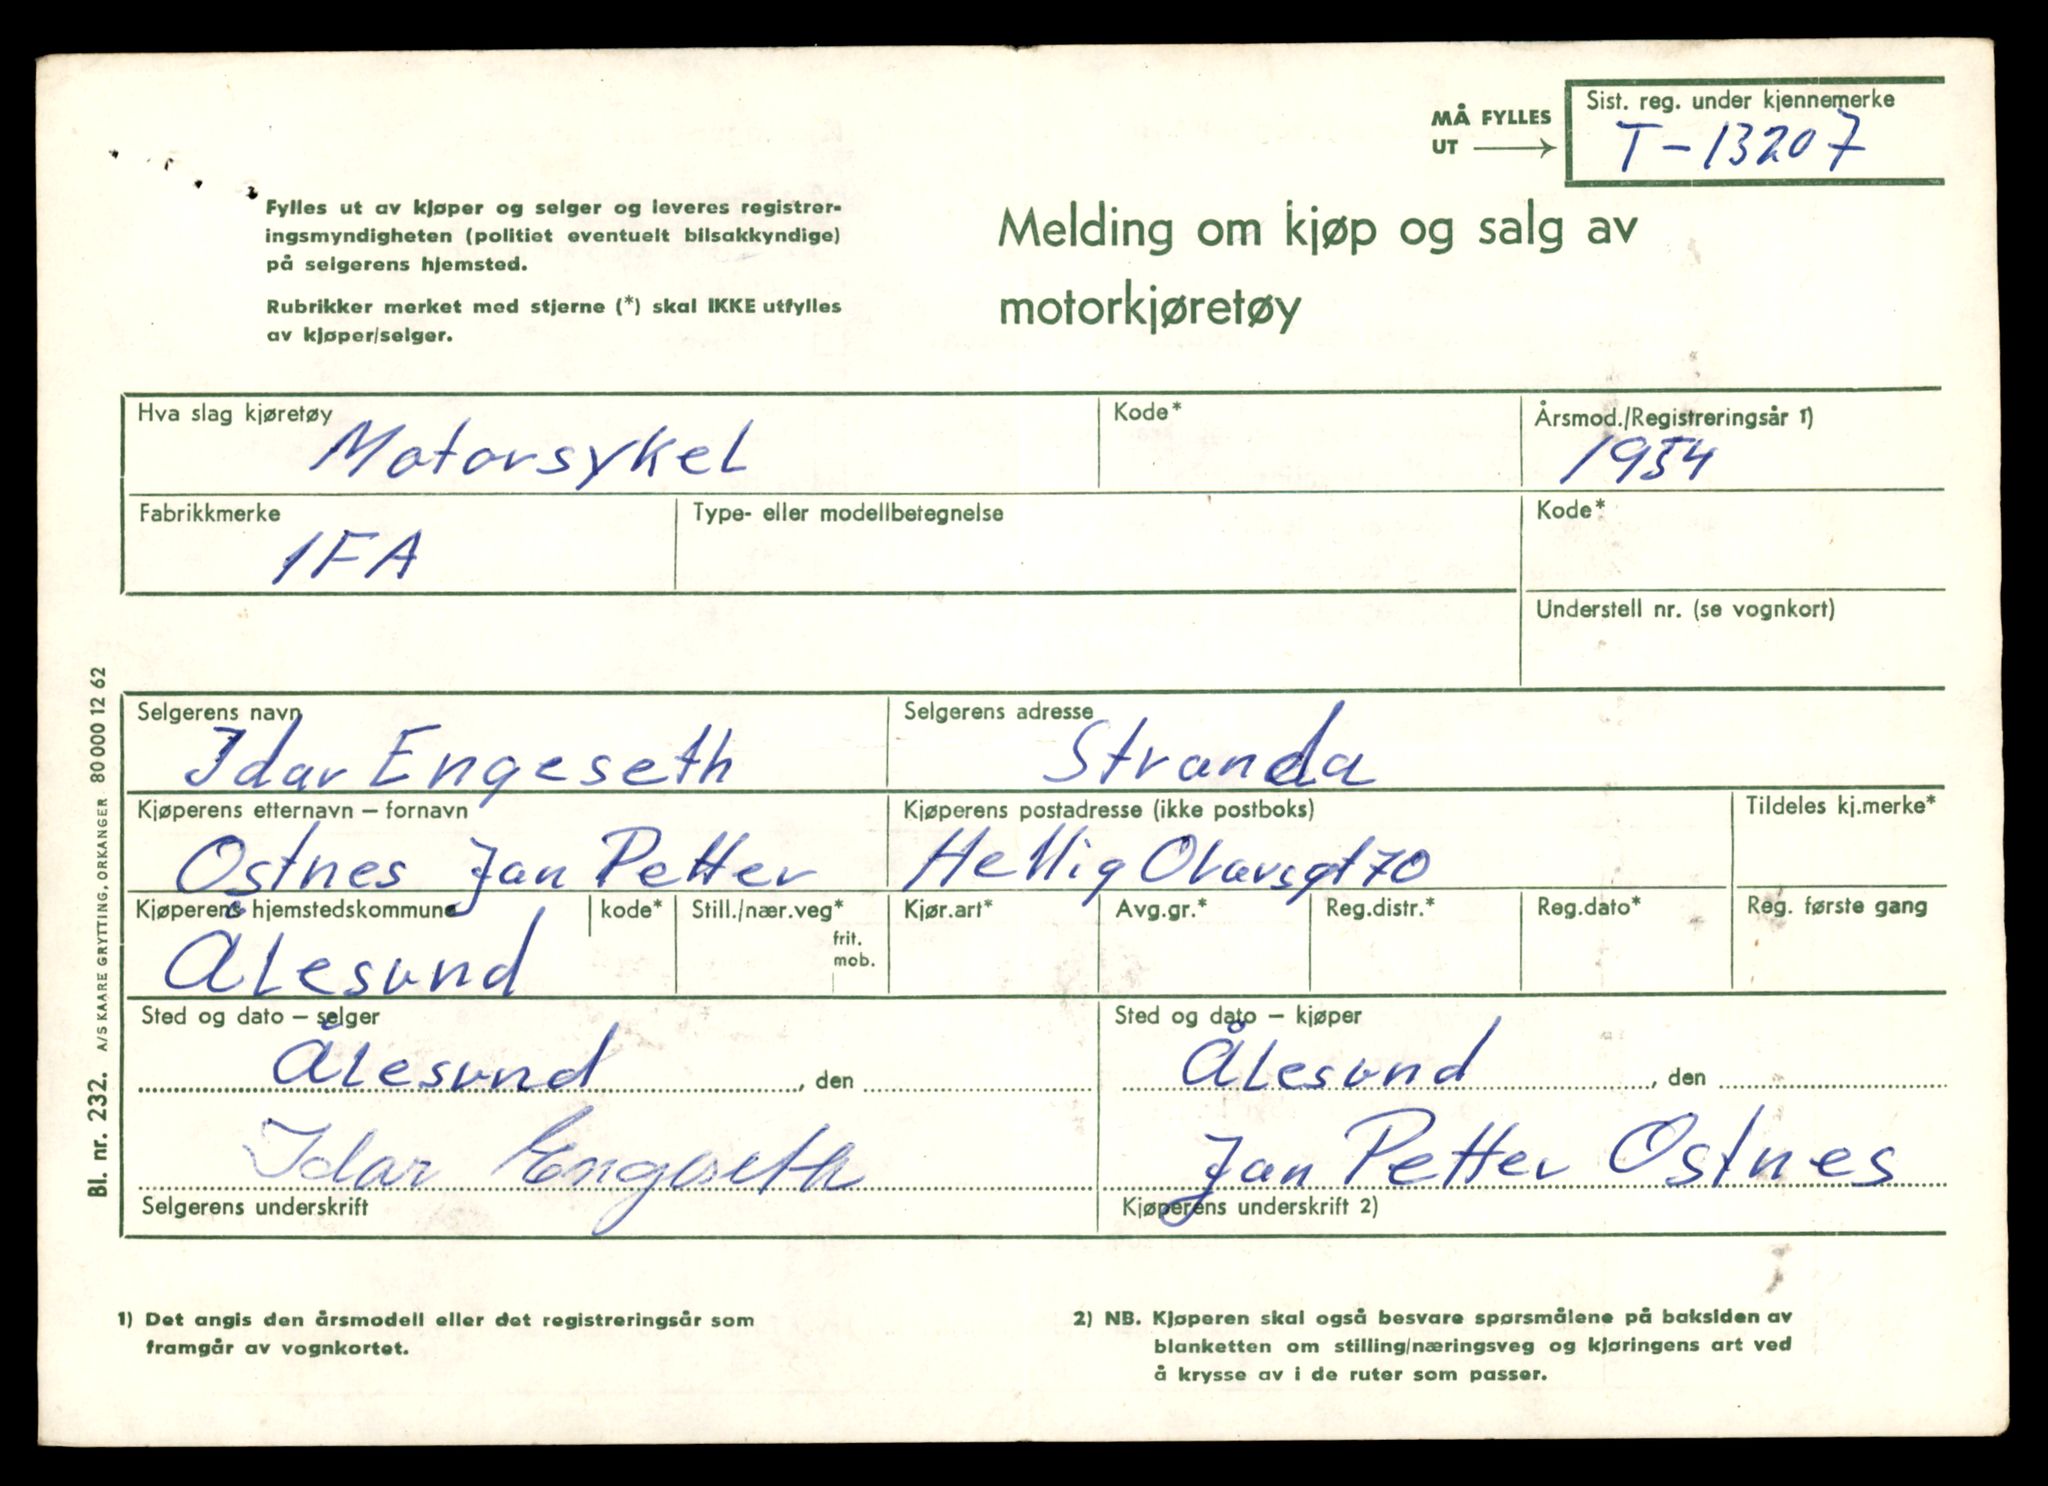 MÅ FYLLES
UT
Sist. reg. under kjennemerke
T-13207
Fylles ut av kjøper og selger og leveres registrer-
ingsmyndigheten (politiet eventuelt bilsakkyndige)
på selgerens hjemsted.
Rubrikker merket med stjerne (*) skal IKKE utfylles
av kjøper/selger.
Melding om kjøp og salg av
motorkjøretøy
Hva slag kjøretøy
Motorsykel
Kode*
Årsmod./Registreringsår 1)
1954
Fabrikkmerke
IFA
Type- eller modellbetegnelse
Kode*
Understell nr. (se vognkort)
Selgerens navn
Idar Engeseth
Selgerens adresse
Stranda
Kjøperens etternavn – fornavn
Ostnes Jan Petter
Kjøperens postadresse (ikke postboks)
Hellig Olavsgt 70
Tildeles kj.merke*
Kjøperens hjemstedskommune
Ålesund
kode*
Still./nær.veg*
frit.
mob.
Kjør.art*
Avg.gr.*
Reg.distr.*
Reg.dato*
Reg. første gang
Sted og dato – selger
Ålesund , den
Idar Engeseth
Selgerens underskrift
Sted og dato – kjøper
Ålesund , den
Jan Petter Ostnes
Kjøperens underskrift 2)
1) Det angis den årsmodell eller det registreringsår som
framgår av vognkortet.
2) NB. Kjøperen skal også besvare spørsmålene på baksiden av
blanketten om stilling/næringsveg og kjøringens art ved
å krysse av i de ruter som passer.
Bl. nr. 232. A/S KAARE GRYTTING, ORKANGER 80 000 12 62